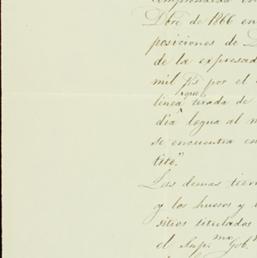 comprendida en
Dbre de 1866 en
posiciones de D
de la expresad
mil p͞s por el
aquel
linea tirada de
dia legua al n
se encuentra en
tite".
Las demas tierr
y los huesos y
sitios titulados
el Sup.mo Gob.n